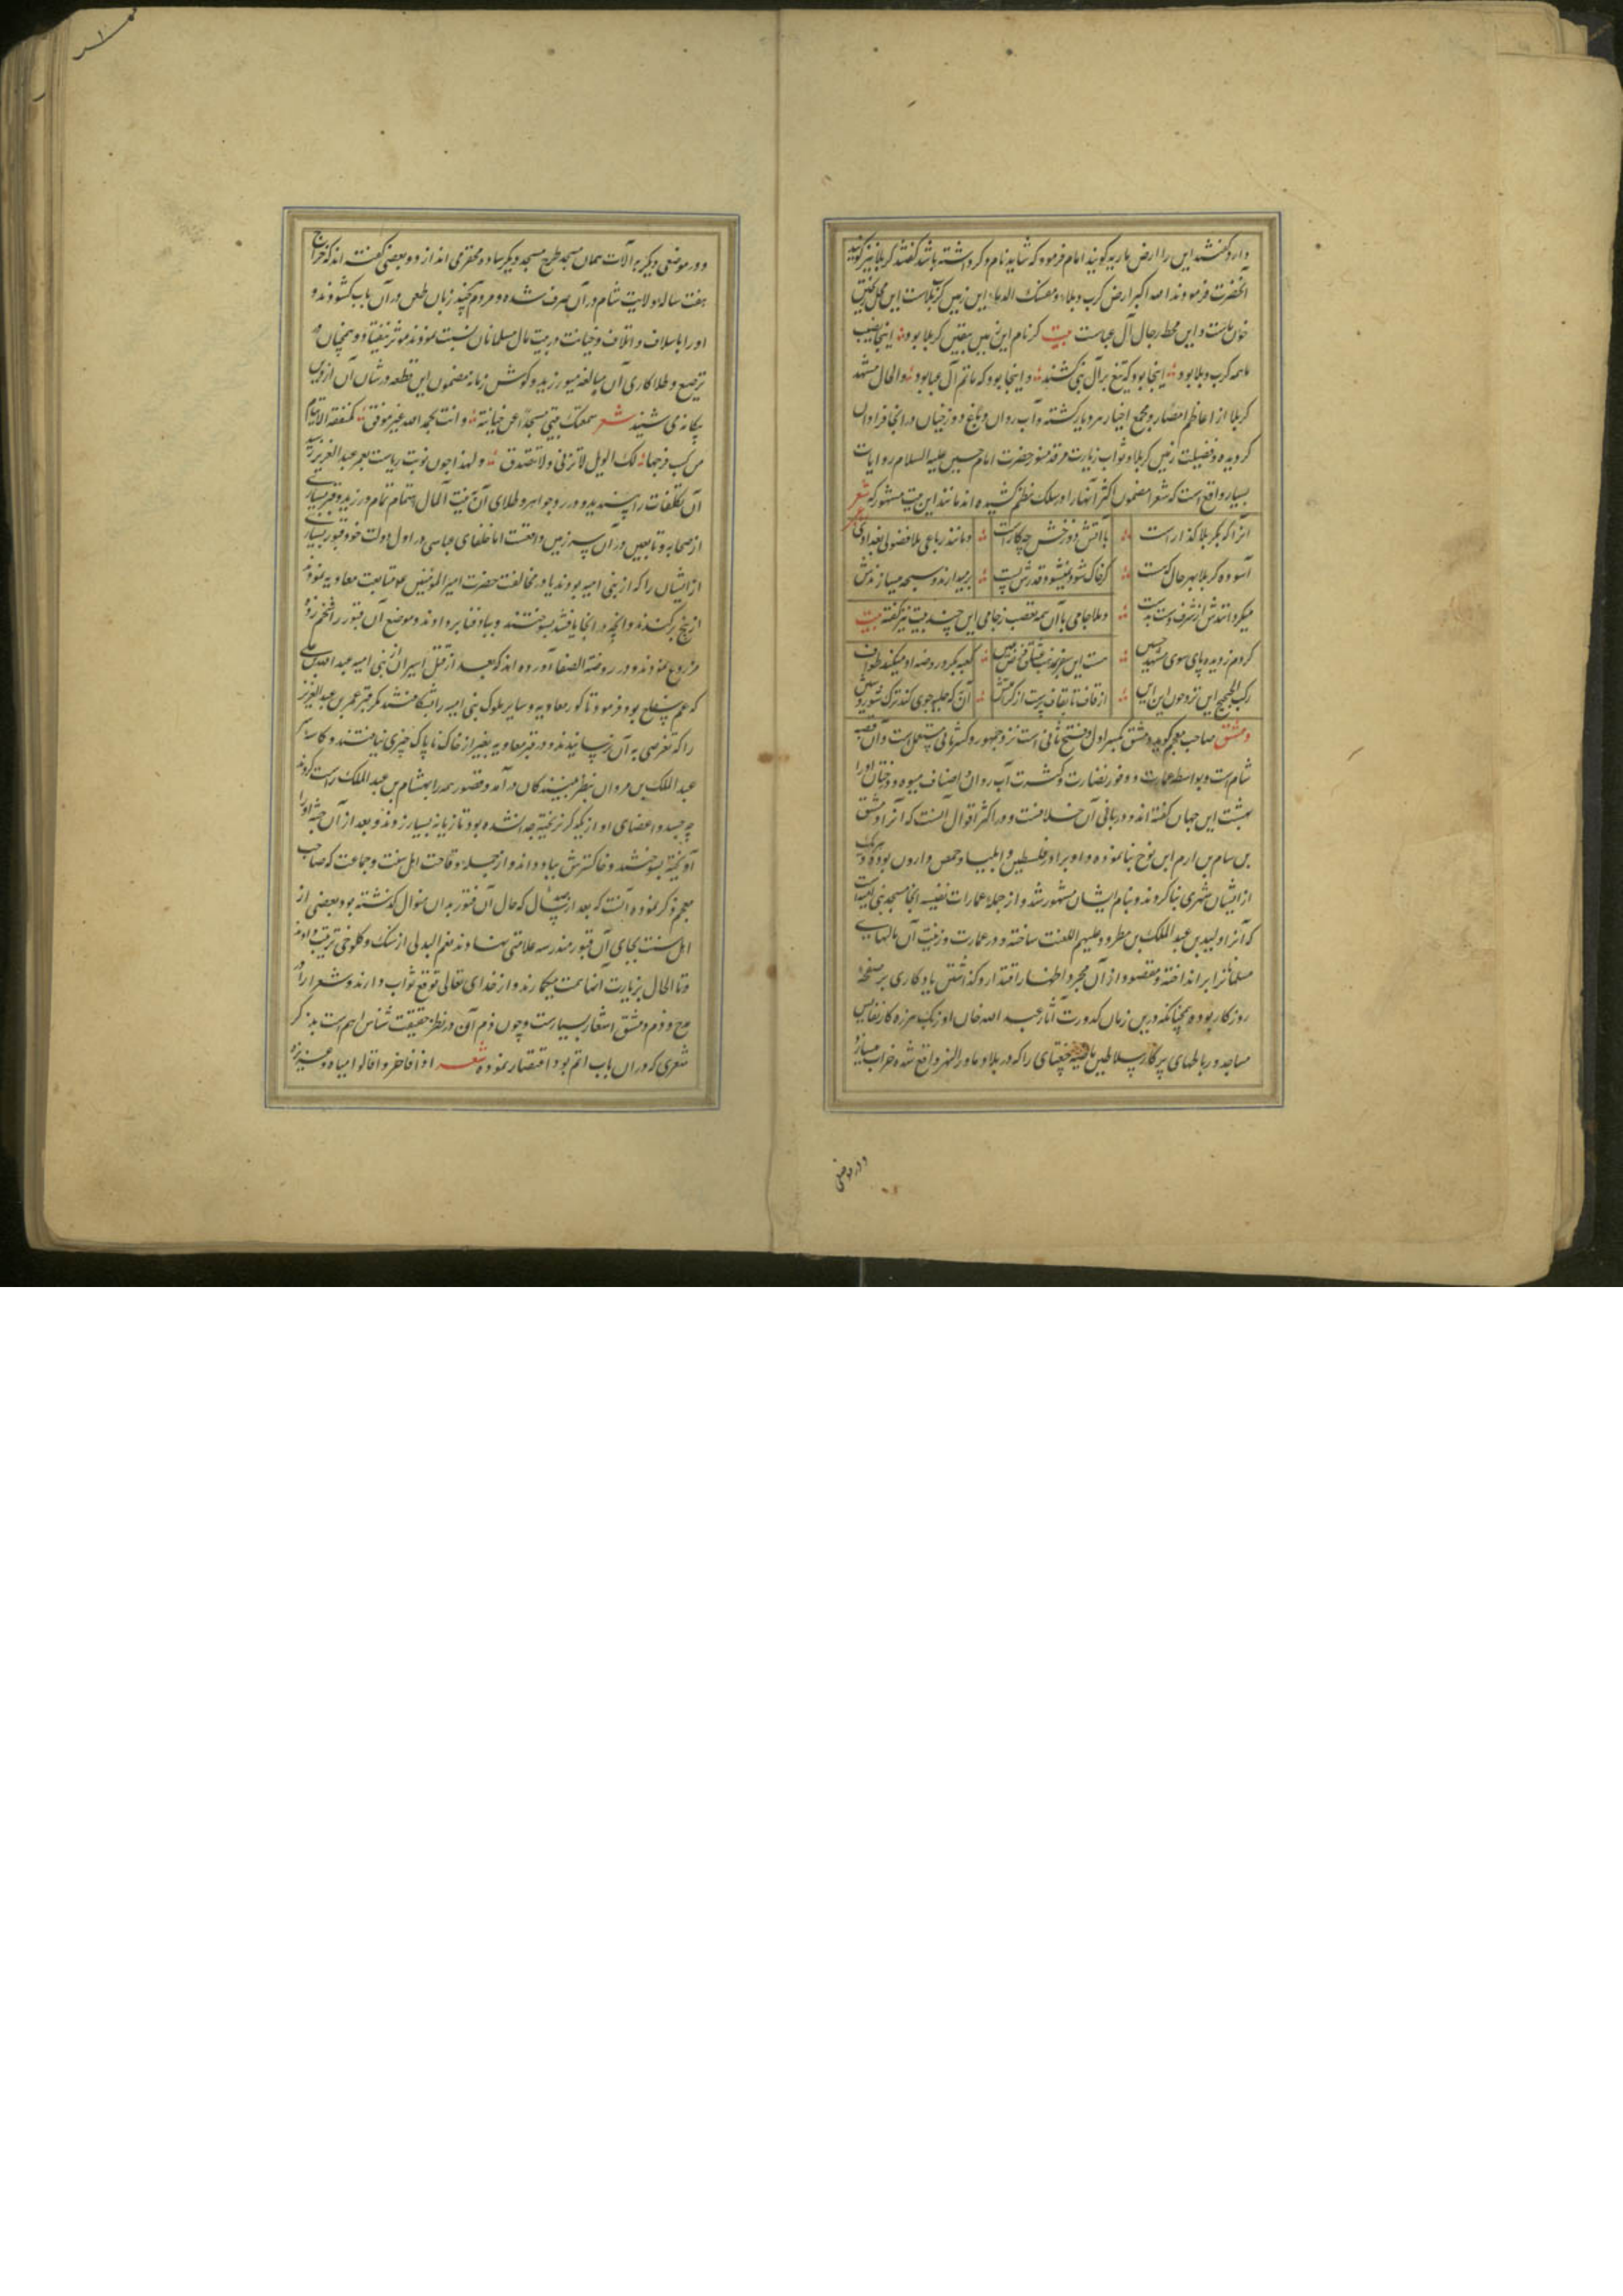 دارد گفتند این را ارض ماریه گویند امام فرمود که شاید نام دگر داشته باشد گفتند کربلا نیز گویند
آنحضرت فرمودند الله اکبر ارض کرب و بلاء و مسفک الدماء این زمین کربلاست این محل ریختن
خون ماست و این محط رجال آل عباست بیت گر نام این زمین بیقین کربلا بود اینجا نصیب
ما همه کرب و بلا بود اینجا بود که تیغ بر آل نبی کشند و اینجا بود که ماتم آل عبا بود و الحال مشهد
کربلا از اعاظم امصار و مجمع اخیار هر دیار گشته و آب روان و باغ و در آنجا فراوان
گردیده و فضیلت زمین کربلا و ثواب زیارت مرقد منور حضرت امام حسین علیه السلام روایات
بسیار واقع است که شعرا مضمون اکثر آنها را در سلک نظم کشیده اند مانند این بیت مشهور که شعر
آنرا که بکربلا گذار است با آتش دوزخش چکار است و مانند رباعی ملا فضولی بغدادی
آسوده کربلا بهر حال که هست گر خاک شود نمیشود قدرش پست بر میدارند و سبحه میسازندش
میگردانندش از شرف دست بدست و ملا جامی با آن همه تعصب ز جامی این چند بیت نیز گفته بیت
کردم ز دیده پای سوی مشهد حسین هست این سفر بمذهب عشاق فرض عین کعبه بگرد روضه او میکند طواف
رکب الحجیج این تروحون این این از قاف تا بقاف پرست از کرامتش آن به که حیله جوی کند ترک شید و شین
دمشق صاحب معجم گوید دمشق بکسر اول و فتح ثانی است نزد جمهور و کسر ثانی مستعمل است و آن قصبه
شام است و بواسطه عمارت و وفور نضارت و کثرت آب روان و اصناف میوه درختان او را
بهشت این جهان گفته اند و در بانی آن خلافست و در اکثر اقوال آنست که آنرا دمشق
بن سام بن ارم ابن نوح بنا نموده و او برادر فلسطین و ایلیا و حمص و اردن بوده و هر یک
از ایشان شهری بنا کردند و بنام ایشان مشهور شد و از جمله عمارات نفیسه آنجا مسجد بنی امیه است
که آنرا ولید بن عبد الملک بن مطرود علیهم اللعنت ساخته و در عمارت و زینت آن مالهای
مسلمانان را بر انداخته و مقصود از آن مجرد اظهار اقتدار و گذاشتن یادگاری بر صفحه
روزگار بوده همچنانکه درین زمان کدورت آثار عبد الله خان اوزبک هرزه کار نفایس
مساجد و رباطهای پرکار سلاطین ماضیه چغتای را که در بلاد ماوراء النهر واقع شده خراب میسازد
در موضعی
و در موضعی دیگر بآلات همان مسجد طرح مسجد دیگر ساده محقر می اندازد و بعضی گفته اند که خراج
هفت ساله ولایت شام در آن صرف شده و مردم زبان طعن در آن باب گشودند و
او را باسلاف و اتلاف و خیانت در بیت مال مسلمانان نسبت نمودند مؤثر نیفتاد و همچنان در
ترصیع و طلا کاری آن مبالغه میورزید و گوش زمانه مضمون این قطعه در شان آن از دین
بیگانه می شنید شعر سمعتک تبنی مسجدا عن خیانة و انت بحمد الله غیر موفق کمنفقة الایتام
من کسب فرجها لک الویل لا تزنی و لا تتصدق و لهذا چون نوبت ریاست بعمر عبد العزیز رسید
آن تکلفات را نپسندیده و در رد جواهر و طلای آن به بیت المال اهتمام تمام ورزید و قبر بسیاری
از صحابه و تابعین در آن سرزمین واقعست اما خلفای عباسی در اول دولت خود قبور بسیاری
از ایشان را که از بنی امیه بودند یا در مخالفت حضرت امیر المؤمنین متابعت معاویه نموده
از بیخ برکندند و آنچه در آنجا یافتند بسوختند و بباد فنا بر دادند و موضع آن قبور را شخم زده
مزروع نمودند و در روضة الصفا آورده اند که بعد از قتل اسیران بنی امیه عبد الله بن علی
که عم سفاح بود فرمود تا گور معاویه و سایر ملوک بنی امیه را بشکافتند مگر قبر عمر بن عبد العزیز
را که تعرضی به آن نرسانیدند و در قبر معاویه بغیر از خاک ناپاک چیزی نیافتند و کاسه سر
عبد الملک بن مروان بنظر بینندگان در آمد و قبور همه را بهشام بن عبد الملک راست کردند
چه جسد و اعضای او از یکدیگر نریخته جدا نشده بود تازیانه بسیار زدند و بعد از آن جثه او را
آویخته بسوختند و خاکسترش بباد دادند و از جمله وقاحت اهل سنت و جماعت که صاحب
معجم ذکر نموده آنست که بعد از سال که حال آن قبور بدان منوال گذشته بود بعضی از
اهل سنت بجای آن قبور مندرسه علامتی نهادند نعم البدلی از سنگ و کلوخی ترتیب دادند
و تا الحال بزیارت آنها همت میگمارند و از خدای تعالی توقع ثواب دارند و شعرا را در
مدح و ذم دمشق اشعار بسیارست و چون ذم آن در نظر حقیقت شناس اهم است بذکر
شعری که در آن باب اتم بود اقتصار نموده شعر اذا فاخروا قالوا میاه غزیرة